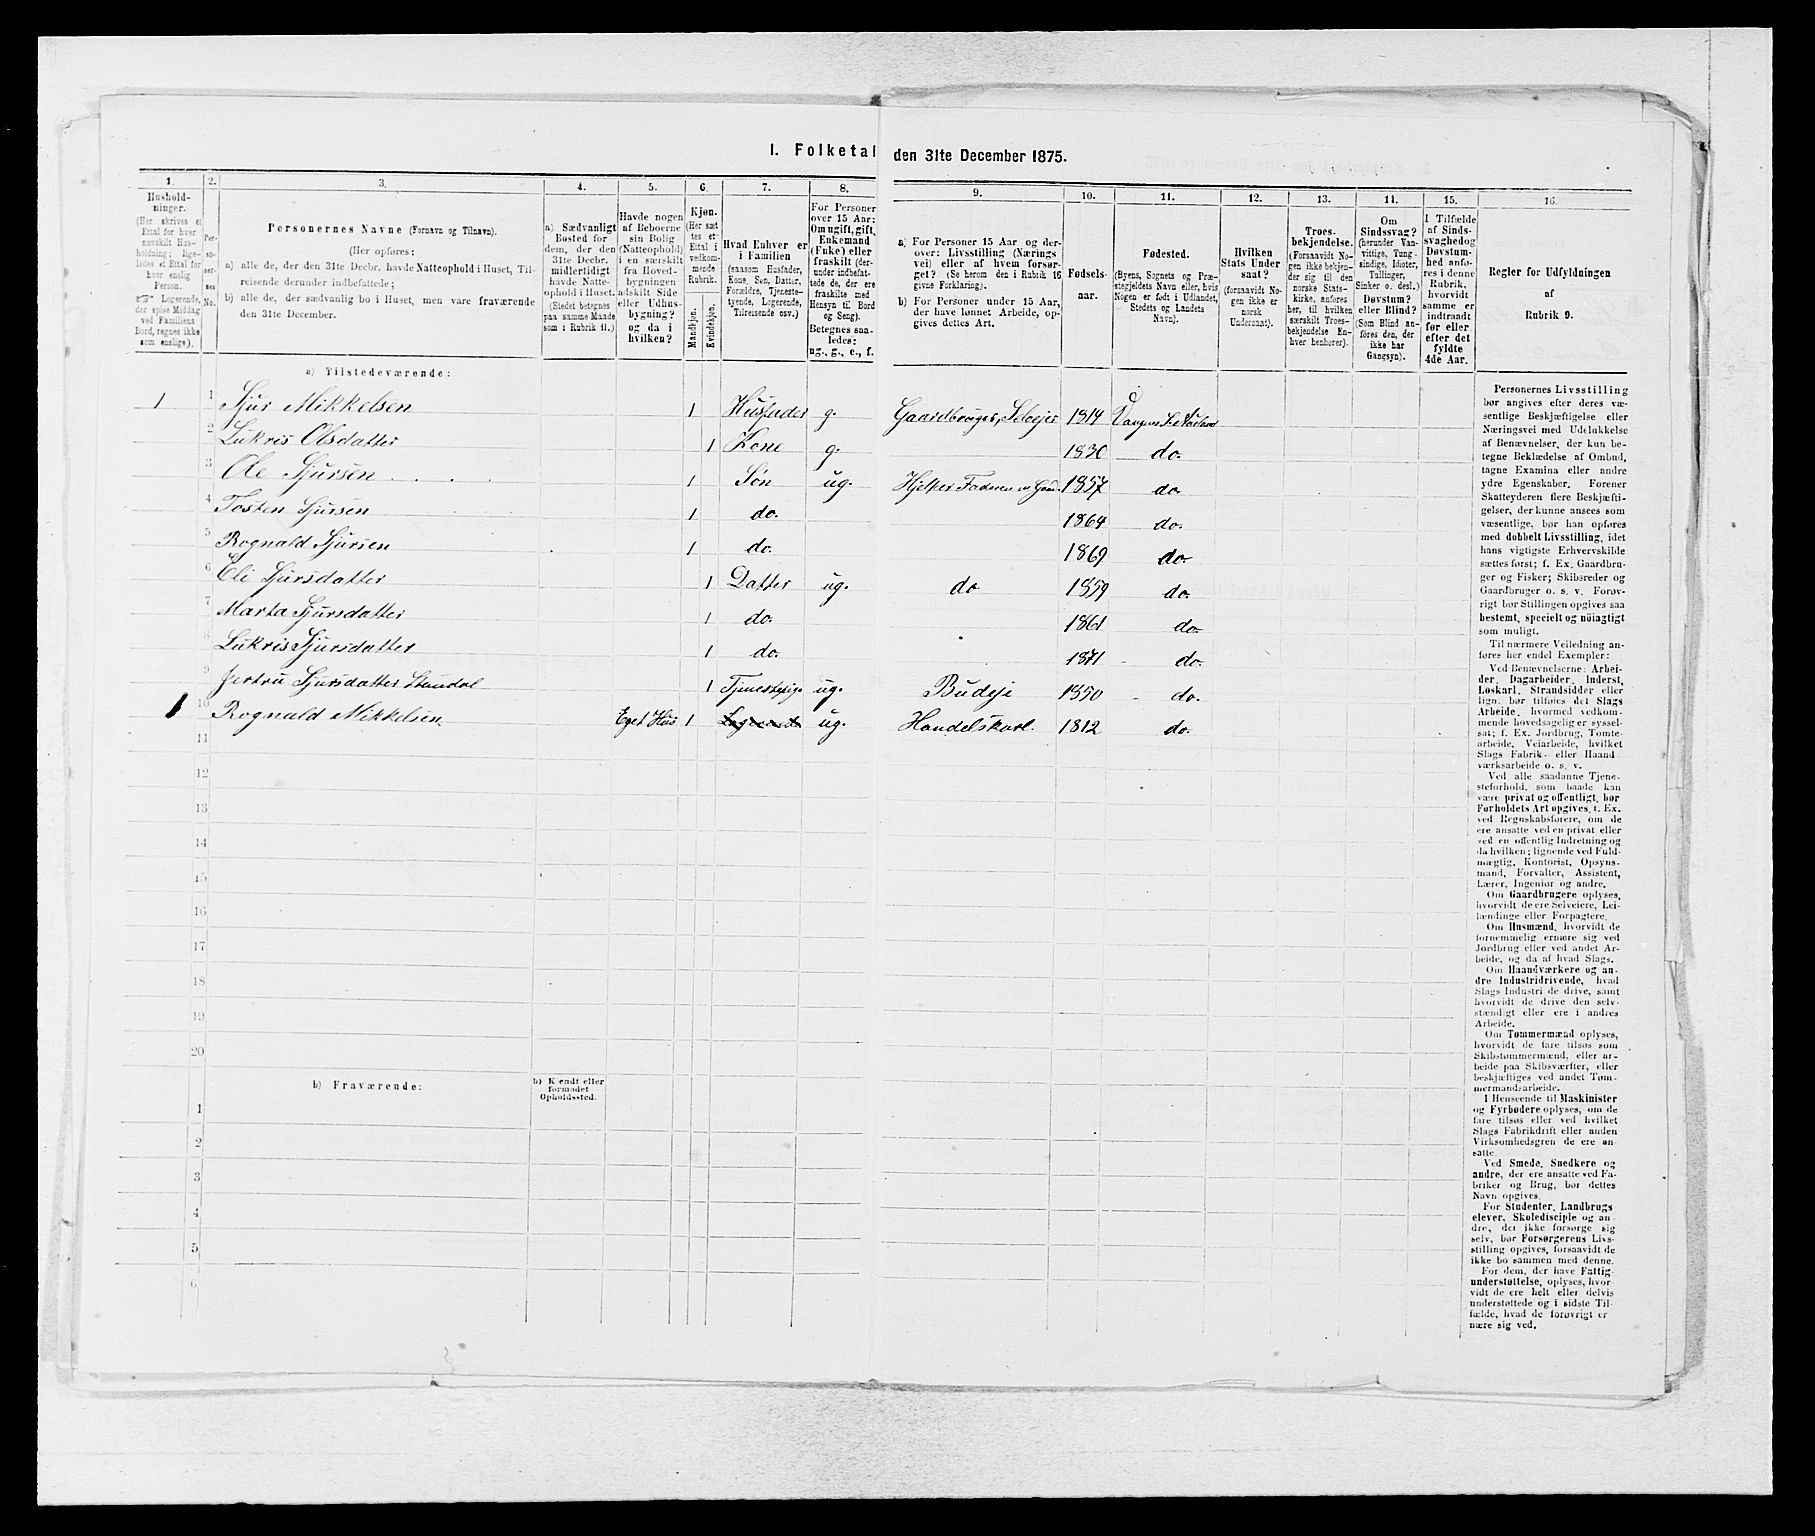 I. Folketal den 31te December 1875.
1. 2. 3. 4. 5. 6. 7. 8. 9. 10. 11. 12. 13. 14. 15. 16.
Hushold-
ninger.
(Her skrives et
Ettal for hver
særskilt Hus-
holdning; lige-
ledes et Ettal for
hver enslig
Person.
☞ Logerende,
der spise Middag
ved Familiens
Bord, regnes ikke
som enslige).
Per-
so-
ner-
nes
No.
Personernes Navne (Fornavn og Tilnavn).
(Her opføres:
a) alle de, der den 31te Decbr. havde Natteophold i Huset, Til-
reisende derunder indbefattede;
b) alle de, der sædvanlig bo i Huset, men vare fraværende
den 31te December.
a) Sædvanligt
Bosted for
dem, der den
31te Decbr.
midlertidigt
havde Natte-
ophold i Huset.
(Stedet betegnes
paa samme Maade
som i Rubrik 11.)
Havde nogen
af Beboerne
sin Bolig
(Natteophold)
i en særskilt
fra Hoved-
bygningen
adskilt Side
eller Udhus-
bygning?
og da i
hvilken?
Kjøn.
(Her sæt
tes et
Ettal i
vedkom-
mende
Rubrik.
Mandkjøn.
Kvindekjøn.
Hvad Enhver er
i Familien
(saasom Husfader,
Kone, Søn, Datter,
Forældre, Tjeneste-
tyende, Logerende,
Tilreisende osv.)
For Personer
over 15 Aar:
Om ugift, gift,
Enkemand
(Enke) eller
fraskilt (der-
under indbefat-
tede de, der ere
fraskilte med
Hensyn til Bord
og Seng).
Betegnes saa-
ledes:
ug., g., e., f.
a) For Personer 15 Aar og der-
over: Livsstilling (Nærings
vei) eller af hvem forsør-
get? (Se herom den i Rubrik 16
givne Forklaring).
b) For Personer under 15 Aar,
der have lønnet Arbeide, op-
gives dettes Art.
Fødsels-
aar.
Fødested.
(Byens, Sognets og Præ-
stegjeldets Navn eller, hvis
Nogen er født i Udlandet,
Stedets og Landets
Navn).
Hvilken
Stats Under
saat?
(forsaavidt No-
gen ikke er
norsk
Undersaat).
Troes-
bekjendelse.
(Forsaavidt No-
gen ikke bekjen-
der sig til den
norske Stats-
kirke, anføres
her, til hvilken
særskilt Troes-
bekjendelse En-
hver henhører).
Om
Sindssvag?
(herunder Van-
vittige, Tung-
sindige, Idioter,
Tullinger,
Sinker o. desl.)
Døvstum?
eller Blind?
(Som Blind an-
føres den, der
ikke har
Gangsyn).
I Tilfælde
af Sinds-
svaghed og
Døvstum-
hed anfø-
res i denne
Rubrik,
hvorvidt
samme er
indtraadt
før eller
efter det
fyldte
4de Aar.
Regler for Udfyldningen
af
Rubrik 9.
a) Tilstedeværende:
1 1 Sjur Mikkelsen 1 Husfader g. Gaardbruger, Selveier 1814
2 Lukris Olsdatter 1 Kone g. 1830 do.
3 Ole Sjursen 1 Søn ug. Hjelper Faderen 1857 do.
4 Tosten Sjursen 1 do. 1864 do.
5 Rognald Sjursen 1 do. 1869 do.
6 Eli Sjursdatter 1 Datter ug. do 1859 do.
7 Marta Sjursdatter 1 do. 1861 do.
8 Lukris Sjursdatter 1 do. 1871 do.
9 Jertru Sjursdatter Stendal 1 Tjenestepige ug. Budeje 1850 do.
1 10 Rognald Mikkelsen Eget Hus 1 Logerende ug. Handelskarl. 1812 do.
11
12
13
14
15
16
17
18
19
20
b) Fraværende:
b) Kjendt eller
formodet
Opholdssted.
1
2
3
4
5
6
Personernes Livsstilling
bør angives efter deres væ-
sentlige Beskjæftigelse eller
Næringsvei med Udelukkelse
af Benævnelser, der kun be-
tegne Beklædelse af Ombud,
tagne Examina eller andre
ydre Egenskaber. Forener
Skatteyderen flere Beskjæfti-
gelser, der kunne ansees som
væsentlige, bør han opføres
med dobbelt Livsstilling, idet
hans vigtigste Erhvervskilde
sættes først; f. Ex. Gaardbru-
ger og Fisker; Skibsreder og
Gaardbruger o. s. v. Forøv-
rigt bør Stillingen opgives saa
bestemt, specielt og nøiagtigt
som muligt.
Til nærmere Veiledning an-
føres her endel Exempler:
Ved Benævnelserne: Arbei-
der, Dagarbeider, Inderst,
Løskarl, Strandsidder eller
lign. bør tilføies det Slags
Arbeide, hvormed vedkom-
mende hovedsagelig er syssel-
sat; f. Ex. Jordbrug, Tomte-
arbeide, Veiarbeide, hvilket
Slags Fabrik- eller Haand
værksarbeide o. s. v.
Ved alle saadanne Tjene-
steforhold, som baade kan
være privat og offentligt, bør
Forholdets Art opgives, f. Ex.
ved Regnskabsførere, om de
ere ansatte ved en privat eller
ved en offentlig Indretning og
da hvilken; lignende ved Fuld-
mægtig, Kontorist, Opsyns-
mand, Forvalter, Assistent,
Lærer, Ingeniør og andre.
Om Gaardbrugere oplyses,
hvorvidt de ere Selveiere, Lei-
lændinge eller Forpagtere.
Om Husmænd, hvorvidt de
fornemmelig ernære sig ved
Jordbrug eller ved andet Ar-
beide, og da af hvad Slags.
Om Haandværkere og an-
dre Industridrivende, hvad
Slags Industri de drive, samt
hvorvidt de drive den selv-
stændigt eller ere i andres
Arbeide.
Om Tømmermænd oplyses,
hvorvidt de fare tilsøs som
Skibstømmermænd, eller ar-
beide paa Skibsværfter, eller
beskjæftiges ved andet Tøm-
mermandsarbeide.
I Henseende til Maskinister
og Fyrbødere oplyses, om de
fare tilsøs eller ved hvilket
Slags Fabrikdrift eller anden
Virksomhedsgren de ere an-
satte.
Ved Smede, Snedkere og
andre, der ere ansatte ved Fa-
briker og Brug, bør dettes
Navn opgives.
For Studenter, Landbrugs
elever, Skoledisciple og an-
dre, der ikke forsørge sig
selv, bør Forsørgerens Livs-
stilling opgives, forsaavidt de
ikke bo sammen med denne.
For dem, der have Fattig-
understøttelse, oplyses, hvor-
vidt de ere helt eller delvis
understøttede og i sidste Til-
fælde, hvad de forøvrigt er
nære sig ved.